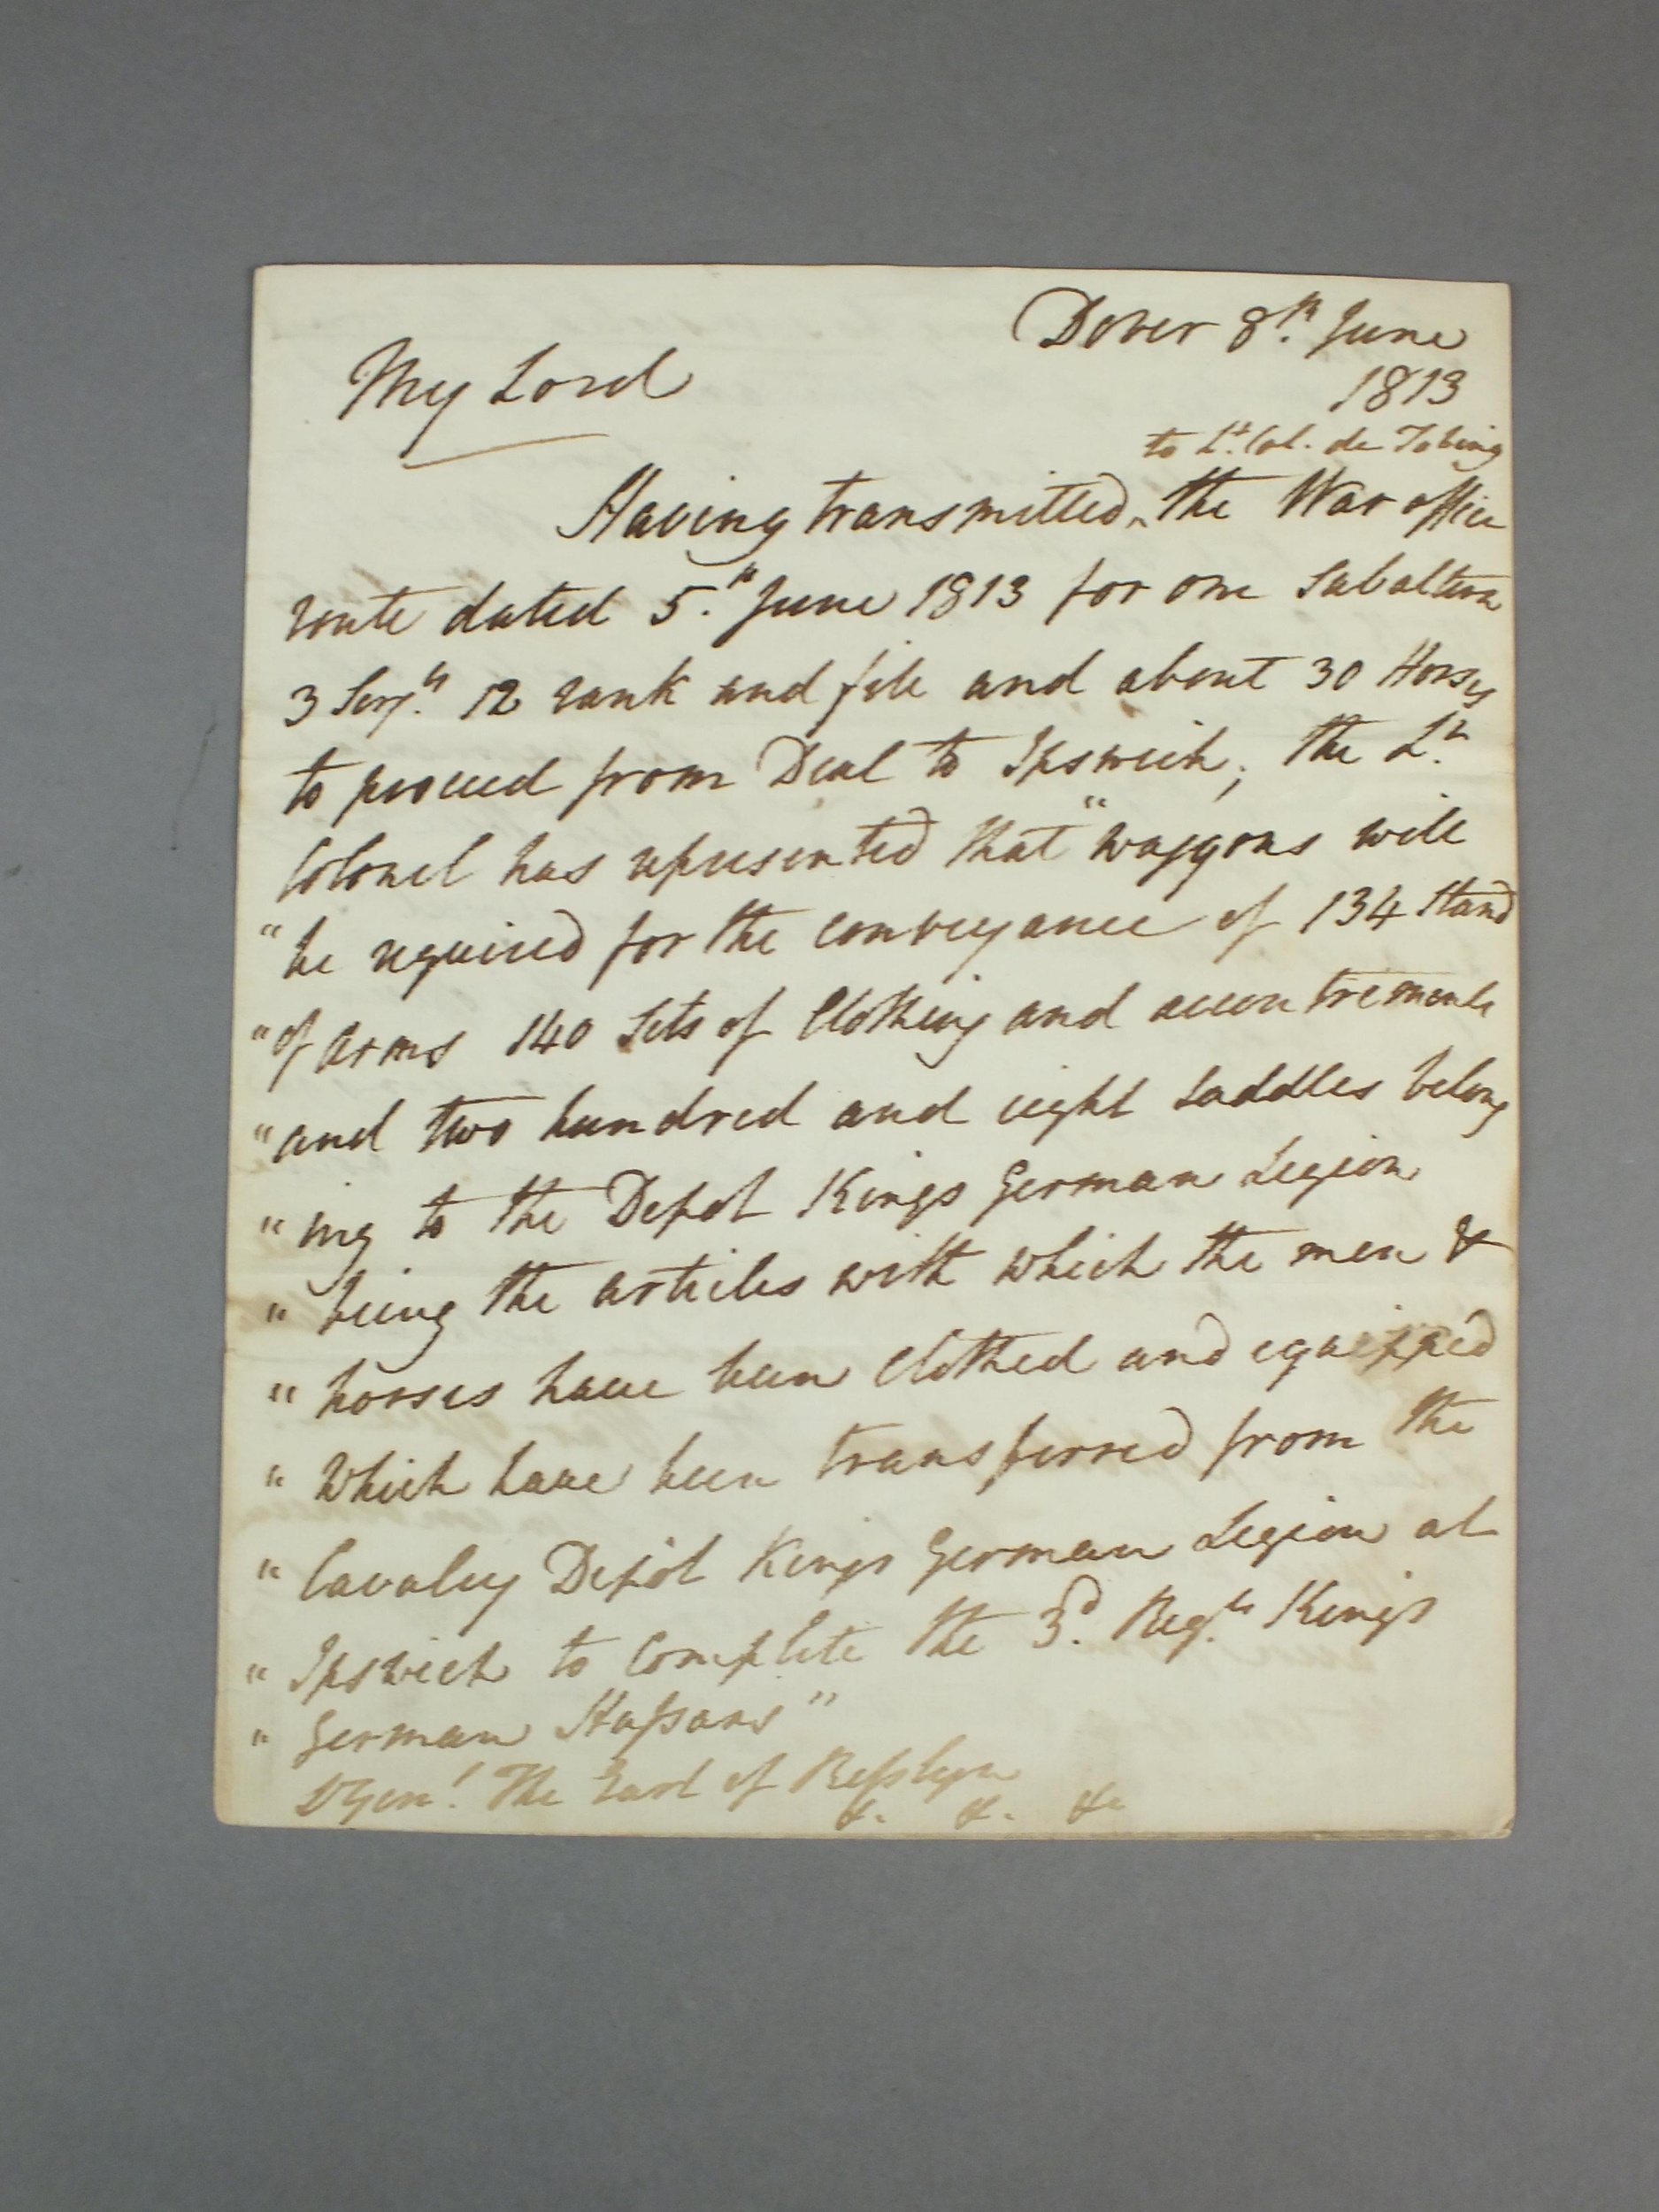 Dover 8.th June
1813
My Lord
to Lt. Col. de Tobing
Having transmitted ‸ the War office
route dated 5.th June 1813 for one Subaltern
3 Serjts. 12 rank and file and about 30 Horses
to proceed from Deal to Ipswich; the Lt.
Colonel has represented that "waggons will
"be required for the conveyance of 134 Stand
"of arms 140 Sets of Clothing and accoutrements
"and two hundred and eight Saddles belong
"ing to the Depot Kings German Legion
"being the articles with which the men &
"horses have been Clothed and equipped
"which have been transferred from the
"Cavalry Depôt Kings German Legion at
"Ipswich to Complete the 3.d Regts. Kings
"German Hussars"
Lt Genl. The Earl of Rosslyn
&. &. &c